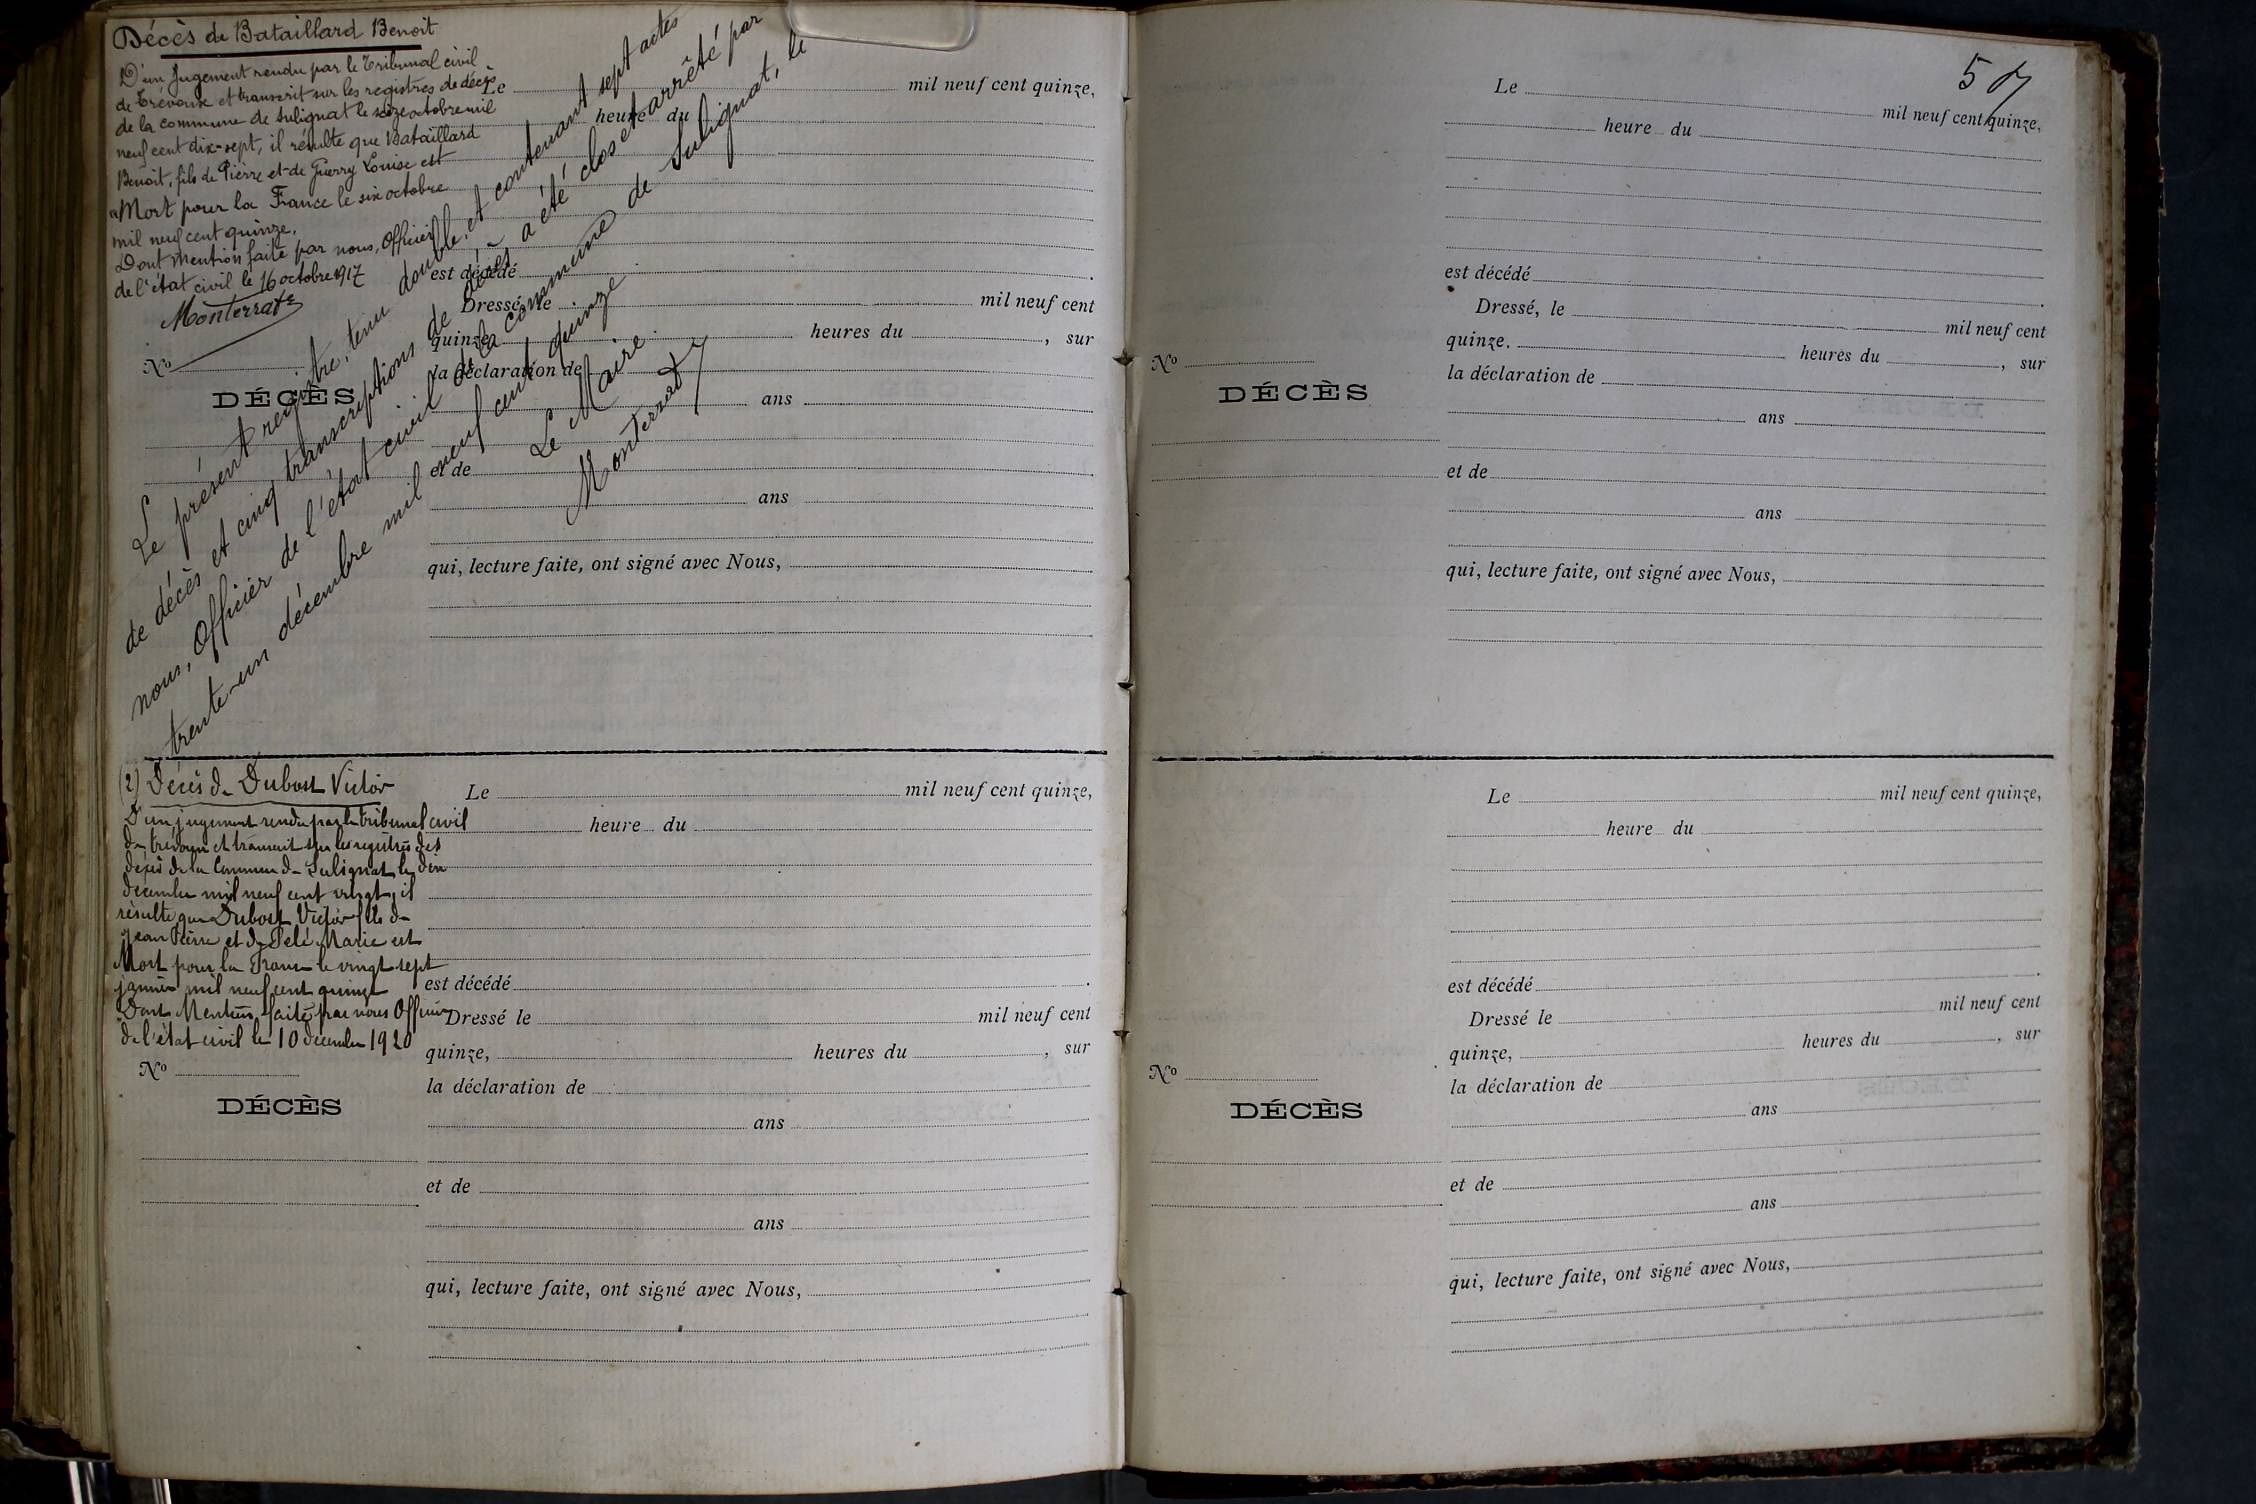 Décès de Bataillard Benoit
D'un Jugement rendu par le Tribunal civil
de Trévoux et transcrit sur les registres de décès
de la commune de Sulignat le seize octobre mil
neuf cent dix-sept, il résulte que Bataillard
Benoit, fils de Pierre et de Guerry Louise est
Mort pour la France le six octobre
mil neuf cent quinze.
Dont Mention faite par nous, Officier
de l'état civil le 16 octobre 1917
Monterrat
Le présent registre, tenu double, et contenant sept actes
de décès et cinq transcriptions de décès a été clos et arrêté par
nous, Officier de l'état civil de la commune de Sulignat, le
trente-un décembre mil neuf cent quinze
Le Maire
Monterrat
Le mil neuf cent quinze,
heure du
est décédé
Dressé, le mil neuf cent
quinze, heures du , sur
la déclaration de
ans
et de
ans
qui, lecture faite, ont signé avec Nous,
No
DÉCÈS
(2) Décès de Dubost Victor
D'un jugement rendu par le Tribunal civil
de Trévoux et transcrit sur les registres des
décès de la Commune de Sulignat le dix
décembre mil neuf cent vingt, il
résulte que Dubost Victor fils de
Jean Pierre et de Marie est
Mort pour la France le vingt sept
janvier mil neuf cent quinze
Dont Mention faite par nous Officier
de l'état civil le 10 décembre 1920
No
DÉCÈS
Le mil neuf cent quinze,
heure du
est décédé
Dressé le mil neuf cent
quinze, heures du , sur
la déclaration de
ans
et de
ans
qui, lecture faite, ont signé avec Nous,
57
Le mil neuf cent quinze,
heure du
est décédé
Dressé, le mil neuf cent
quinze, heures du , sur
la déclaration de
ans
et de
ans
qui, lecture faite, ont signé avec Nous,
No
DÉCÈS
Le mil neuf cent quinze,
heure du
est décédé
Dressé le mil neuf cent
quinze, heures du , sur
la déclaration de
ans
et de
ans
qui, lecture faite, ont signé avec Nous,
No
DÉCÈS